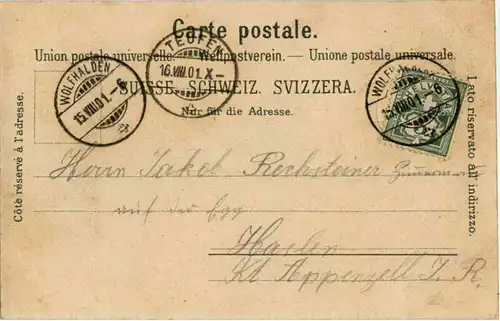 Carte postale.
Union postale universelle. — Weltpostverein. — Unione postale universale.
SUISSE. SCHWEIZ. SVIZZERA.
Nur für die Adresse.
Côte réservé à l'adresse.
Lato riservato all' indirizzo.
WOLFHALDEN
15.VIII.01.-6
TEUFEN
16.VIII.01.X-
WOLFHALDEN
15.VIII.01.-6
HELVETIA
Herrn Jakob Rechsteiner
auf der Egg
Haslen
Kt Appenzell I. R.